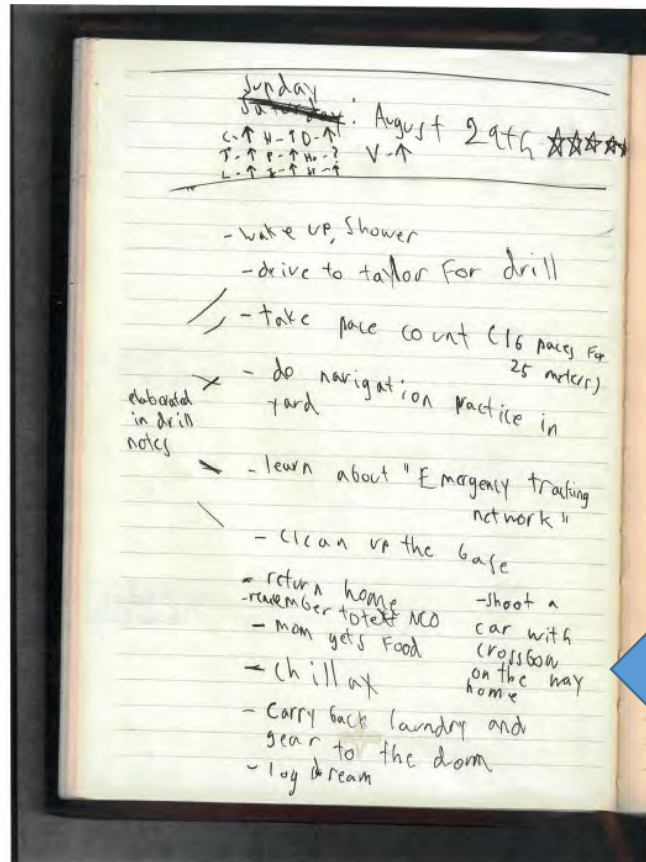 Sunday
Saturday: August 29th ☆☆☆☆☆
C-↑ H-↑ D-↑
T-↑ P-↑ Ho-? V-↑
L-↑
- wake up, Shower
- drive to taylor For drill
- take pace count (16 paces For
25 meters)
- do navigation practice in
yard
elaborated
in drill
notes
- learn about "Emergency tracking
network"
- clean up the base
- return home
- remember to text NCO
- mom gets Food
- chillax
- shoot a
car with
crossbow
on the way
home
- Carry back laundry and
gear to the dorm
- log dream